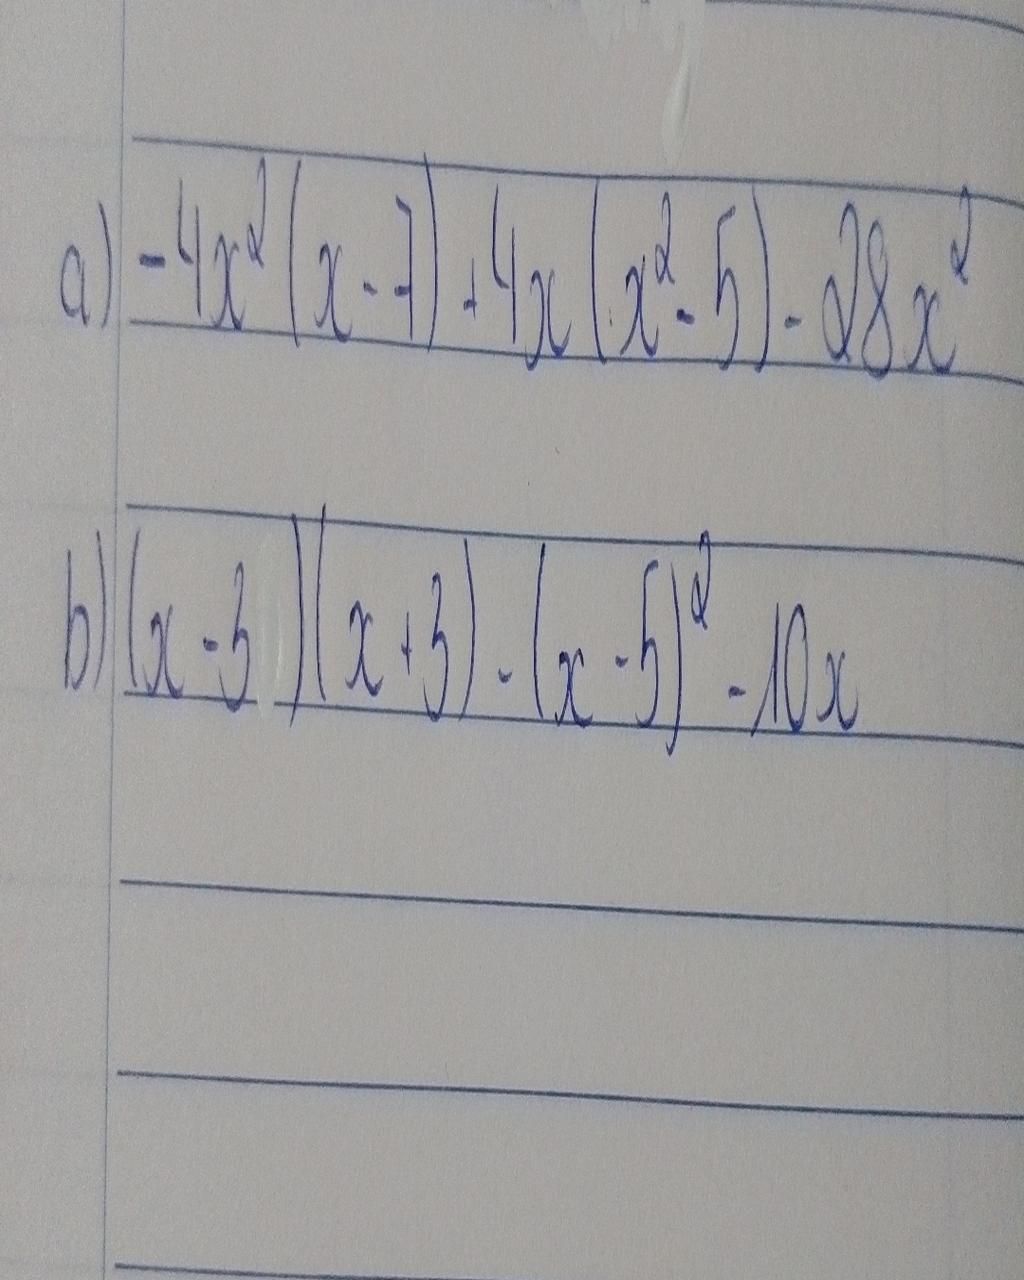 a) -4x² (x - 7) + 4x (x² - 5) - 28x²
b) (x - 3) (x + 3) - (x - 5)² - 10x